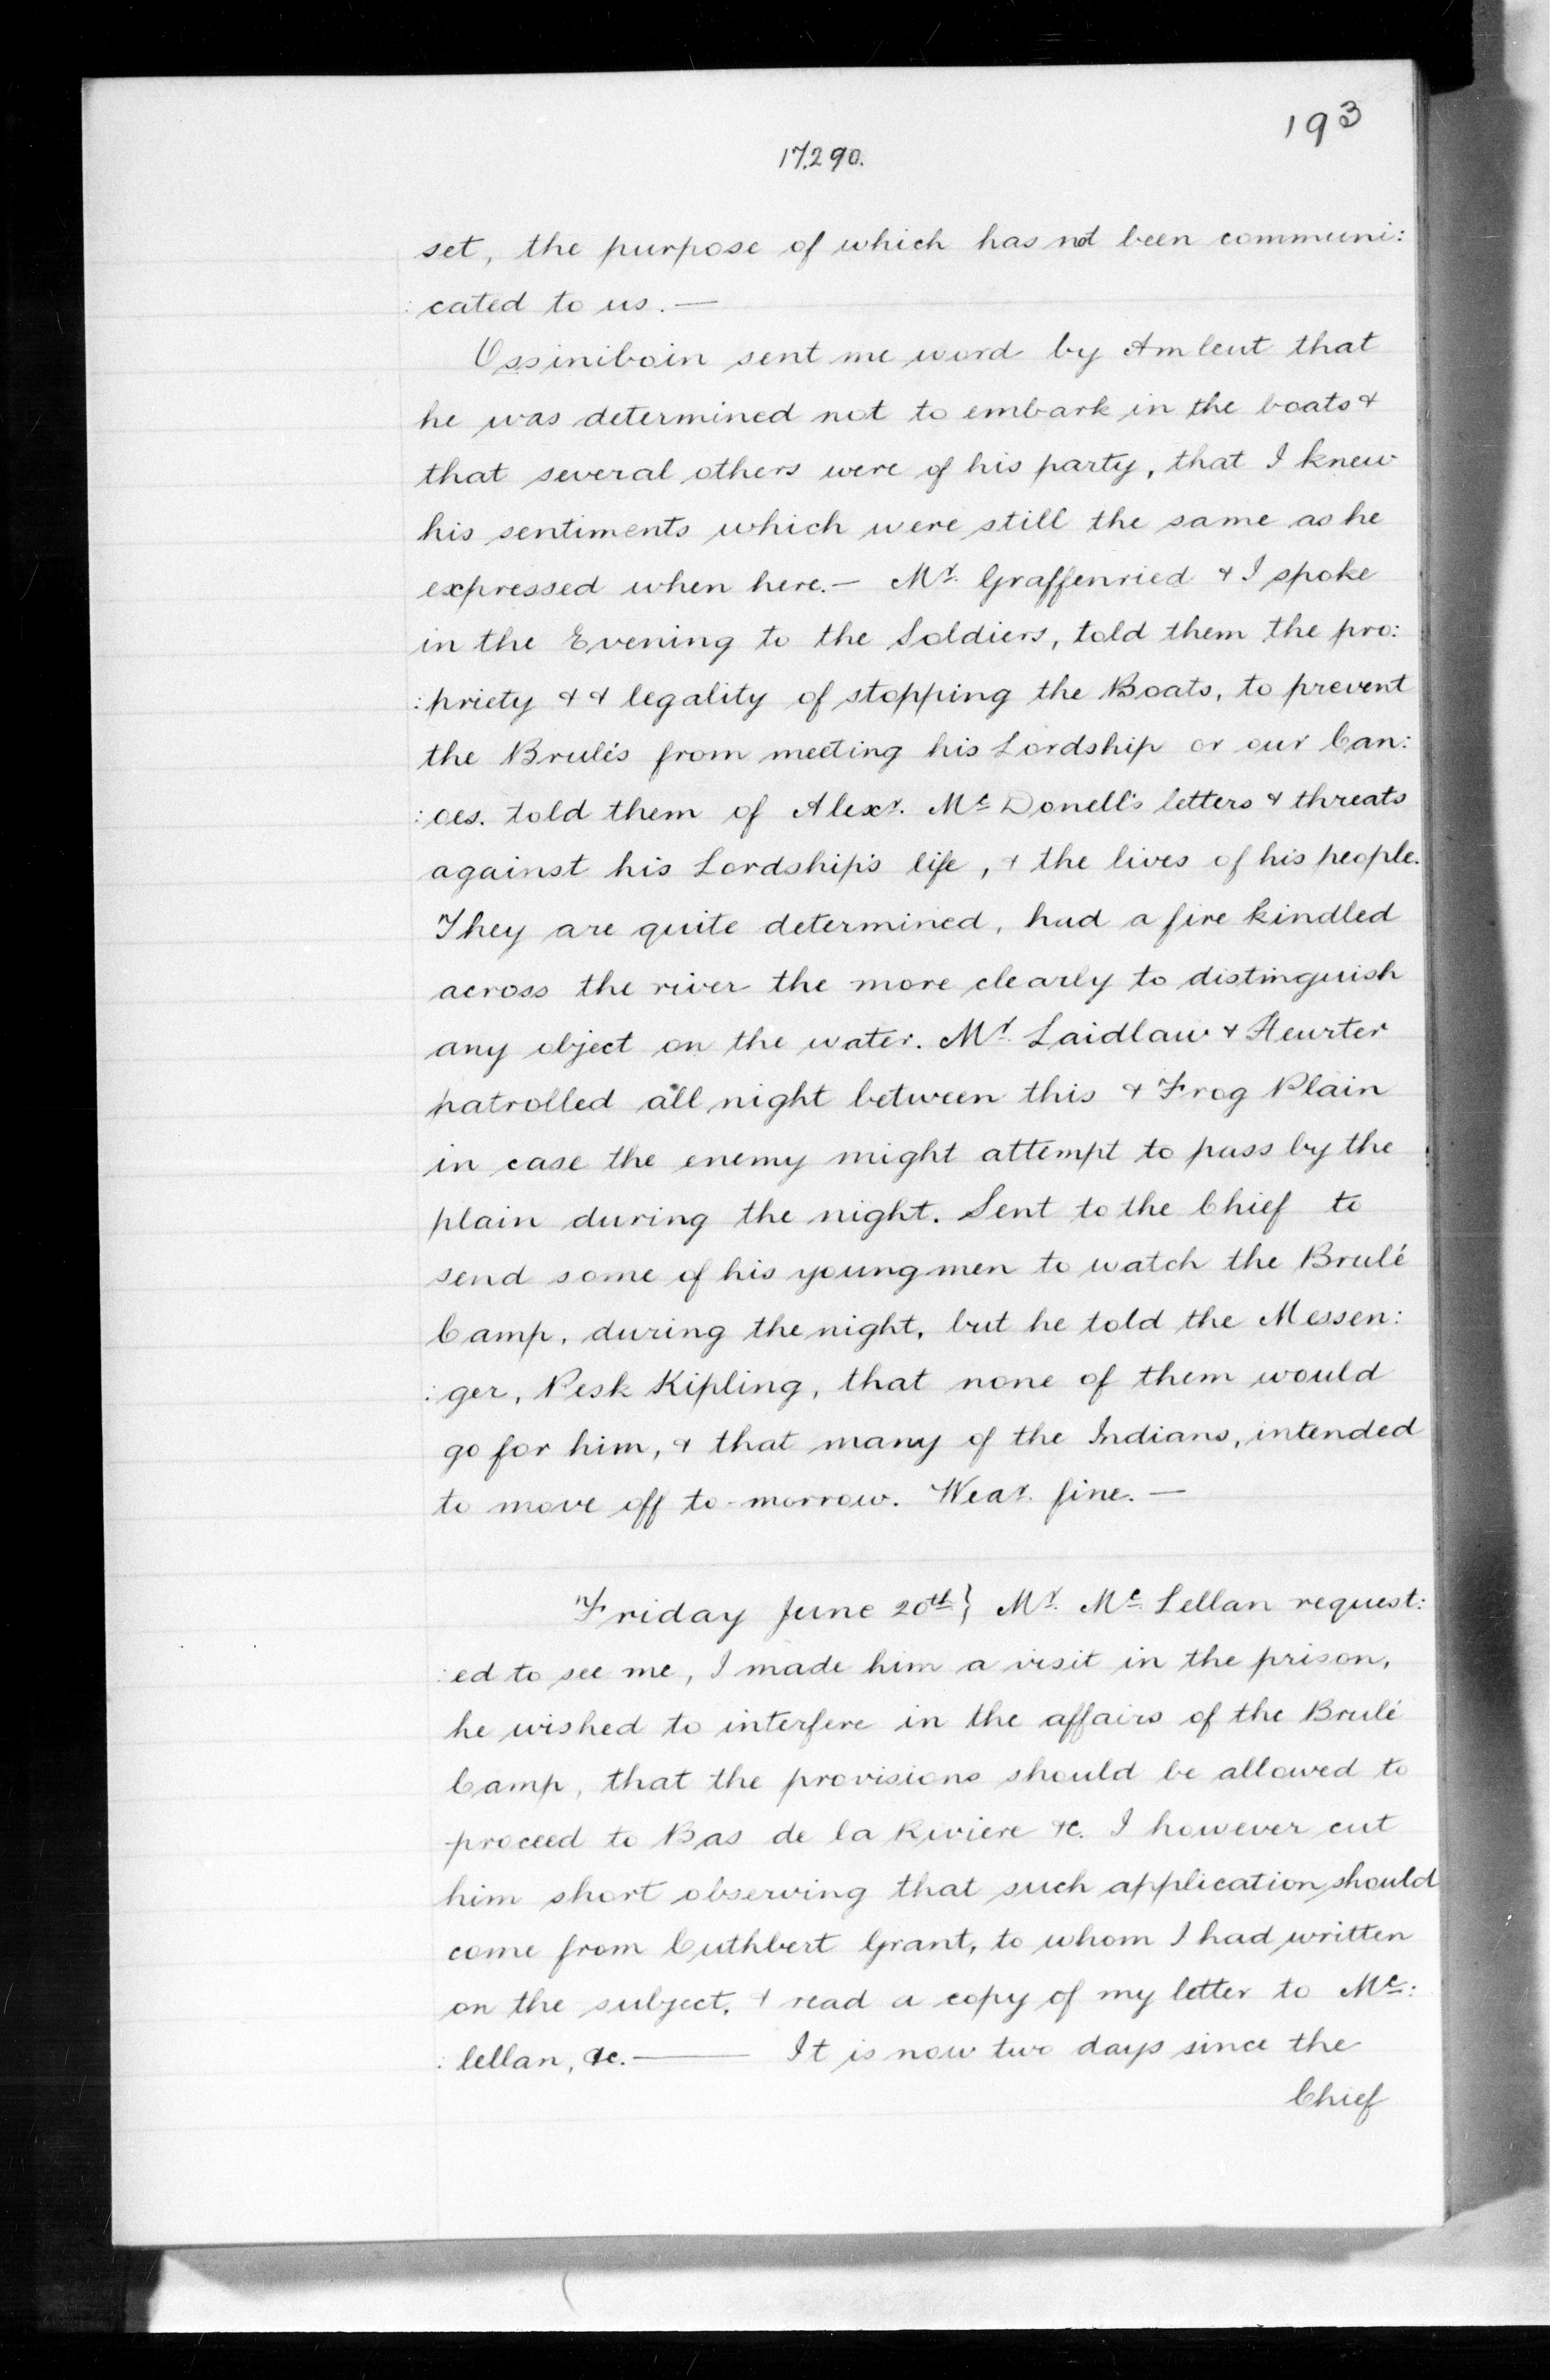 193
17290.
set, the purpose of which has not been communi:
:cated to us. —
Ossiniboin sent me word by Amleut that
he was determined not to embark in the boats &
that several others were of his party, that I knew
his sentiments which were still the same as he
expressed when here. — Mr. Graffenried & I spoke
in the Evening to the Soldiers, told them the pro:
:priety & & legality of stopping the Boats, to prevent
the Brulés from meeting his Lordship or our Can:
:oes. told them of Alexr. Mc Donell's letters & threats
against his Lordship's life, & the lives of his people.
They are quite determined, had a fire kindled
across the river the more clearly to distinguish
any object on the water. Mr. Laidlaw & Heurter
patrolled all night between this & Frog Plain
in case the enemy might attempt to pass by the
plain during the night. Sent to the Chief to
send some of his young men to watch the Brulé
Camp, during the night, but he told the Messen:
:ger, Pesk Kipling, that none of them would
go for him, & that many of the Indians, intended
to move off to-morrow. Wear. fine. —
Friday June 20th} Mr. Mc Lellan request:
:ed to see me, I made him a visit in the prison,
he wished to interfere in the affairs of the Brulé
Camp, that the provisions should be allowed to
proceed to Bas de la Riviere &c. I however cut
him short observing that such application should
come from Cuthbert Grant, to whom I had written
on the subject, & read a copy of my letter to Mc:
:lellan, &c. — It is now two days since the
Chief